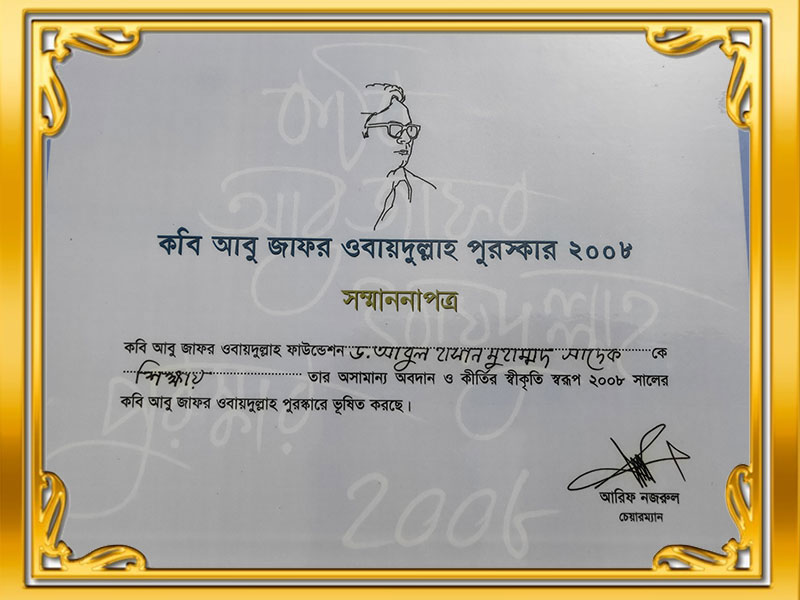 কবি আবু জাফর ওবায়দুল্লাহ পুরস্কার ২০০৮
সম্মাননাপত্র
কবি আবু জাফর ওবায়দুল্লাহ ফাউন্ডেশন ড. আবুল হাসান মুহাম্মদ সাদেক কে
শিক্ষায় তার অসামান্য অবদান ও কীর্তির স্বীকৃতি স্বরূপ ২০০৮ সালের
কবি আবু জাফর ওবায়দুল্লাহ পুরস্কারে ভূষিত করছে।
আরিফ নজরুল
চেয়ারম্যান
কবি
আবু জাফর
ওবায়দুল্লাহ
পুরস্কার
২০০৮